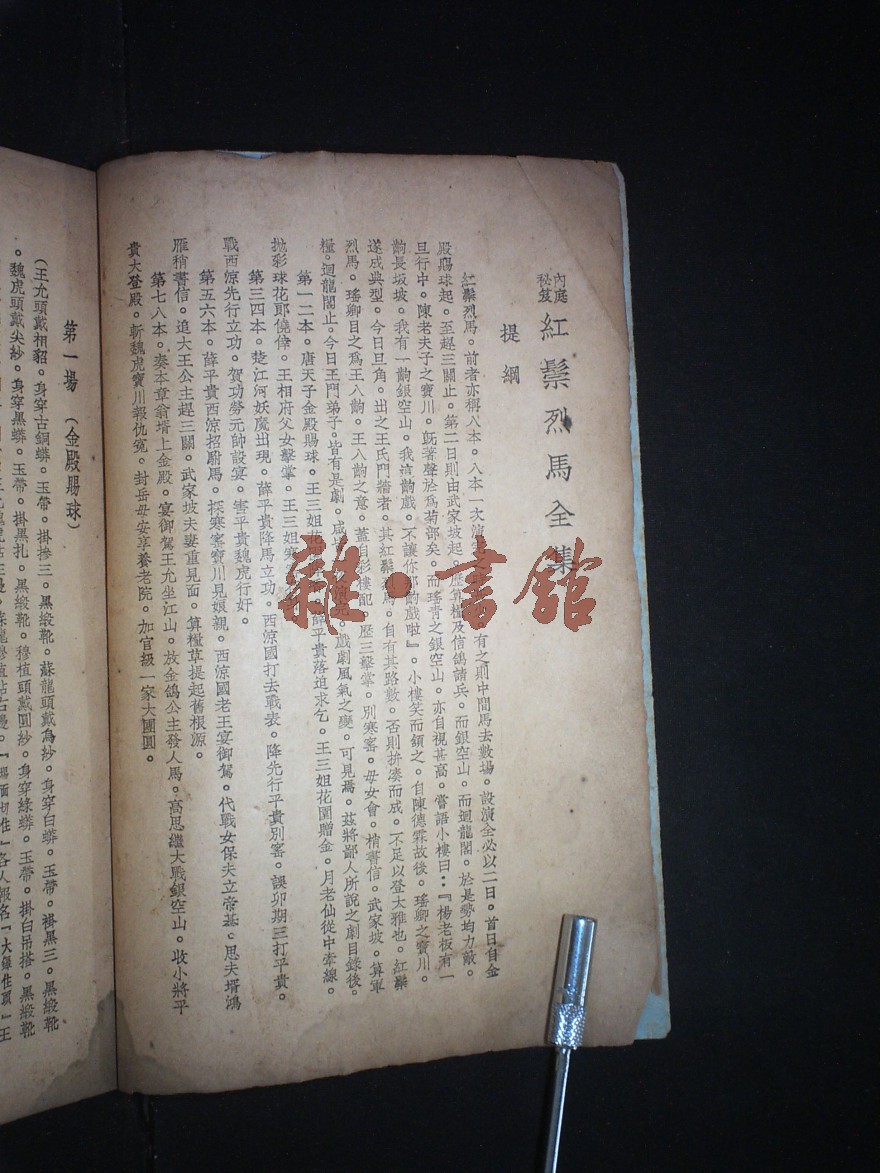 內庭
秘笈
紅鬃烈馬全集
提綱
紅鬃烈馬。前者亦稱八本。八本一次演 有之則中間馬去數場。設演全必以二日。首日自金
殿賜球起。至趕三關止。第二日則由武家坡起。歷算糧及信鴿請兵。而銀空山。而迴龍閣。於是勢均力敵。
旦行中。陳老夫子之寶川。旣著聲於爲菊部矣。而瑤青之銀空山。亦自視甚高。嘗語小樓曰：『楊老板有一
齣長坂坡。我有一齣銀空山。我這齣戲。不讓你那齣戲啦』。小樓笑而頷之。自陳德霖故後。瑤卿之寶川。
遂成典型。今日旦角。出之王氏門牆者。其紅鬃烈馬。自有其路數。否則拼凑而成。不足以登大雅也。紅鬃
烈馬。瑤卿目之爲王八齣。王八齣之意。蓋自彩樓配。歷三擊掌。別寒窰。母女會。梢書信。武家坡。算軍
糧。迴龍閣止。今日王門弟子。皆有是劇。咸 戲劇風氣之變。可見焉。茲將鄙人所說之劇目錄後。
第一二本。唐天子金殿賜球。王三姐花園 薛平貴落迫求乞。王三姐花園贈金。月老仙從中牽線。
抛彩球花郞僥倖。王相府父女擊掌。王三姐寒
第三四本。楚江河妖魔出現。薛平貴降馬立功。西涼國打去戰表。降先行平貴別窰。誤卯期三打平貴。
戰西涼先行立功。賀功勞元帥設宴。害平貴魏虎行奸。
第五六本。薛平貴西涼招駙馬。探寒窰寶川見娘親。西涼國老王宴御駕。代戰女保夫立帝基。思夫壻鴻
雁稍書信。追大王公主趕三關。武家坡夫妻重見面。算糧草提起舊根源。
第七八本。奏本章翁壻上金殿。宴御駕王允坐江山。放金鴿公主發人馬。高思繼大戰銀空山。收小將平
貴大登殿。斬魏虎寶川報仇冤。封岳母安享養老院。加官級一家大團圓。
第一場 （金殿賜球）
（王允頭戴相貂。身穿古銅蟒。玉帶。掛摻三。黑緞靴。蘇龍頭戴烏紗。身穿白蟒。玉帶。褂黑三。黑緞靴
。魏虎頭戴尖紗。身穿黑蟒。玉帶。掛黑扎。黑緞靴。穆植頭戴圓紗。身穿綠蟒。玉帶。掛白吊搭。黑緞靴
雜·書館